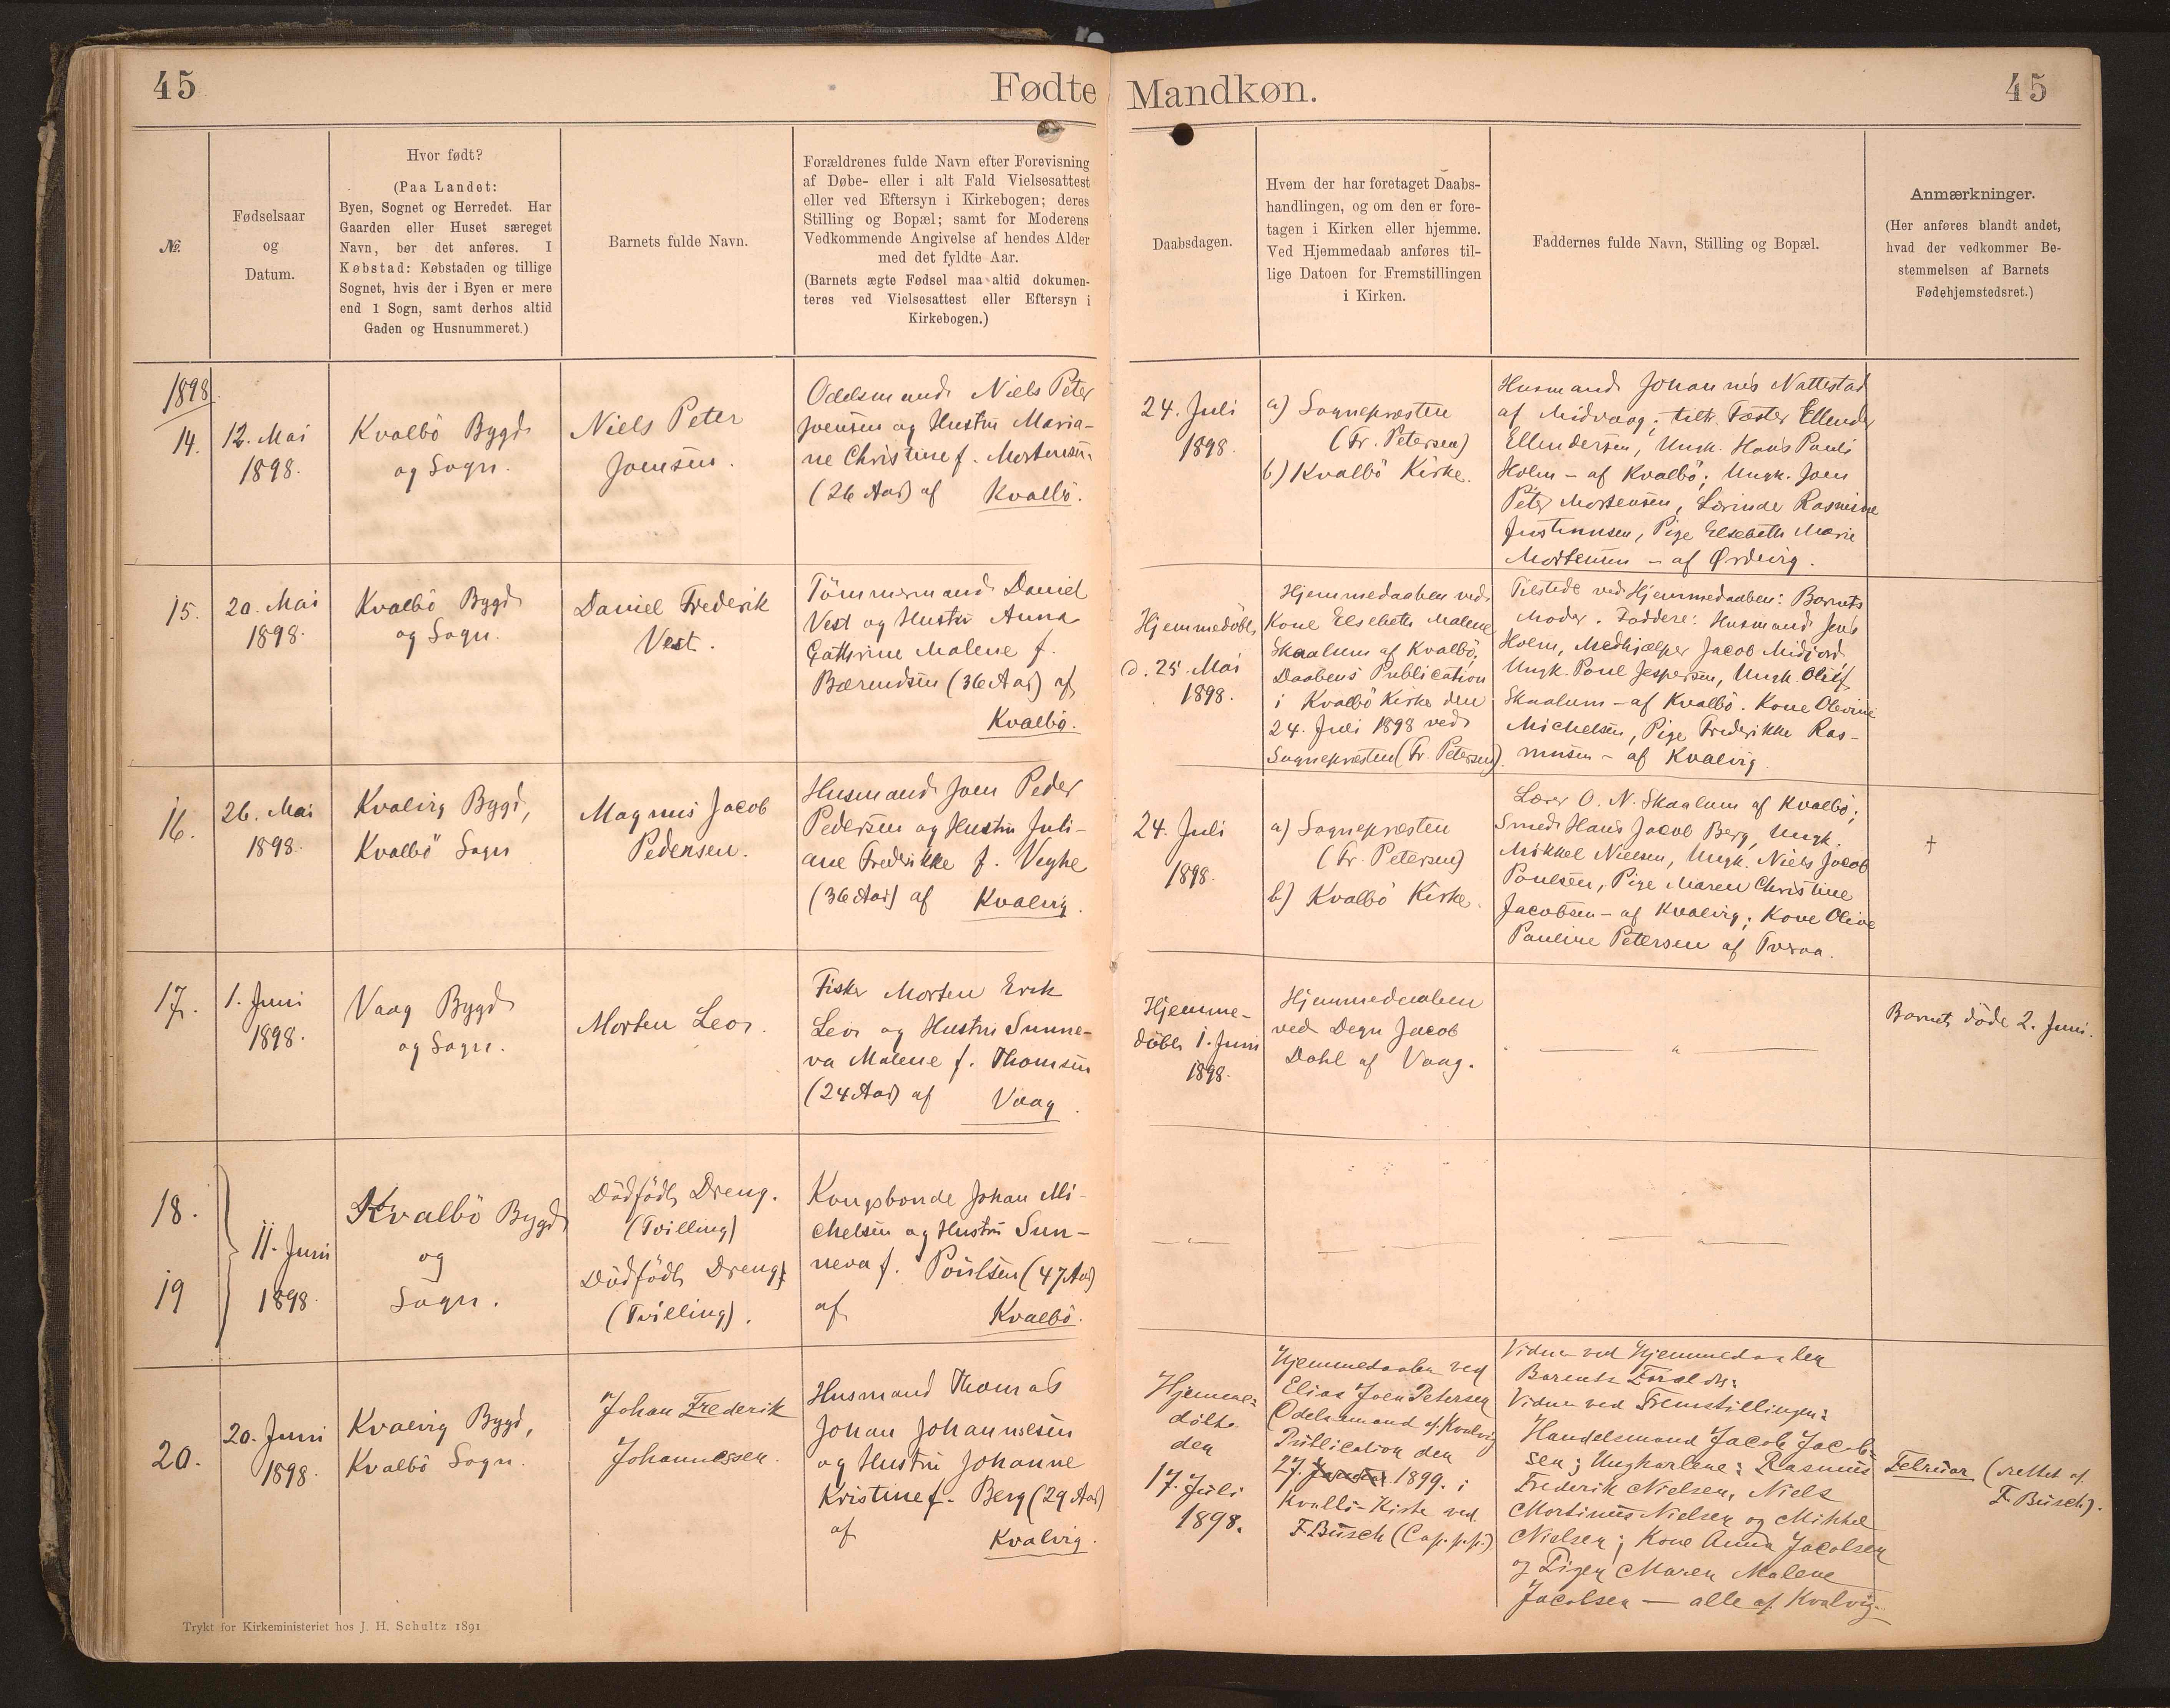 45
Fødte
Mandkøn.
45
№.
Fødselsaar
og
Datum.
Hvor født?
(Paa Landet:
Byen, Sognet og Herredet. Har
Gaarden eller Huset særeget
Navn, bør det anføres. I
Købstad: Købstaden og tillige
Sognet, hvis der i Byen er mere
end 1 Sogn, samt derhos altid
Gaden og Husnummeret.)
Barnets fulde Navn.
Forældrenes fulde Navn efter Forevisning
af Døbe- eller i alt Fald Vielsesattest
eller ved Eftersyn i Kirkebogen; deres
Stilling og Bopæl; samt for Moderens
Vedkommende Angivelse af hendes Alder
med det fyldte Aar.
(Barnets ægte Fødsel maa altid dokumen-
teres ved Vielsesattest eller Eftersyn i
Kirkebogen.)
Daabsdagen.
Hvem der har foretaget Daabs-
handlingen, og om den er fore-
tagen i Kirken eller hjemme.
Ved Hjemmedaab anføres til-
lige Datoen for Fremstillingen
i Kirken.
Faddernes fulde Navn, Stilling og Bopæl.
Anmærkninger.
(Her anføres blandt andet,
hvad der vedkommer Be-
stemmelsen af Barnets
Fødehjemstedsret.)
1898
14.
12. Mai
1898.
Kvalbö Bygd
og Sogn.
Niels Peter
Joensen.
Odelsmand Niels Peter
Joensen og Hustru Maria-
ne Christine f. Mortensen
(26 Aar) af Kvalbö.
24. Juli
1898.
a) Sognepræsten
(Fr. Petersen)
b) Kvalbö Kirke.
Husmand Johannes Nattestad
af Midvaag; Fæster Ellend
Ellendersen, Ungk. Hans Pauli
Holm - af Kvalbö; Ungk. Joen
Peter Mortensen, Rasmine
Justinusen, Pige Elsebeth Marie
Mortensen - af Ørdevig.
15.
20. Mai
1898.
Kvalbö Bygd
og Sogn.
Daniel Frederik
Vest.
Tömmermand Daniel
Vest og Hustru Anna
Cathrine Malene f.
Bærendsen (36 Aar) af
Kvalbö.
Hjemmedöbt
d. 25. Mai
1898.
Hjemmedaaben ved
Kone Elsebeth Malene
Skaalum af Kvalbö;
Daabens Publication
i Kvalbö Kirke den
24. Juli 1898 ved
Sognepræsten (Fr. Petersen).
Tilstede ved Hjemmedaaben: Barnets
Moder. Faddere: Husmand Jens
Holm, Medhjælper Jacob Midjord
Ungk. Poul Jespersen, Ungk. Oluf
Skaalum - af Kvalbö. Kone Olevine
Michelsen, Pige Frederikke Ras-
musen - af Kvalvig.
16.
26. Mai
1898.
Kvalvig Bygd,
Kvalbö Sogn
Magnus Jacob
Pedersen.
Husmand Joen Peder
Pedersen og Hustru Juli-
ane Frederikke f. Veyhe
(36 Aar) af Kvalvig.
24. Juli
1898.
a) Sognepræsten
(Fr. Petersen)
b) Kvalbö Kirke.
Lærer O. N. Skaalum af Kvalbö;
Smed Hans Jacob Berg, Ungk.
Mikkel Nielsen, Ungk. Niels Jacob
Poulsen, Pige Maren Christine
Jacobsen - af Kvalvig; Kone Olive
Pauline Petersen af Tveraa.
†
17.
1. Juni
1898.
Vaag Bygd
og Sogn.
Morten Leo.
Fisker Morten Erik
Leo og Hustru Sunne-
va Malene f. Thomsen
(24 Aar) af Vaag.
Hjemme-
döbt 1. Juni
1898.
Hjemmedaaben
ved Degn Jacob
Dahl af Vaag.
— " —
Barnet döde 2. Juni.
18.
19
11. Juni
1898.
Kvalbö Bygd
og
Sogn.
Dödfödt Dreng.
(Tvilling)
Dödfödt Dreng
(Tvilling).
Kongsbonde Johan Mi-
chelsen og Hustru Sun-
neva f. Poulsen (47 Aar)
af Kvalbö.
— " —
— " —
— " —
20.
20. Juni
1898.
Kvalvig Bygd,
Kvalbö Sogn.
Johan Frederik
Johannessen.
Husmand Thomas
Johan Johannesen
og Hustru Johanne
Kristine f. Berg (29 Aar)
af Kvalvig.
Hjemme-
döbt
den
17. Juli
1898.
Hjemmedaaben ved
Elias Joen Petersen
Odelsmand af Kvalvig
Publication den
27. Januar 1899. i
Kvalbö-Kirke ved
F. Busch (Cap. p.p.)
Vidner ved Hjemmedaaben
Barnets Forældre:
Vidner ved Fremstillingen:
Handelsmand Jacob Jacob-
sen; Ungkarlene: Rasmus
Frederik Nielsen, Niels
Mortinus Nielsen og Mikkel
Nielsen; Kone Anna Jacobsen
og Pigen Maren Malene
Jacobsen — alle af Kvalvig.
Februar (rettet af
F. Busch).
Trykt for Kirkeministeriet hos J. H. Schultz 1891